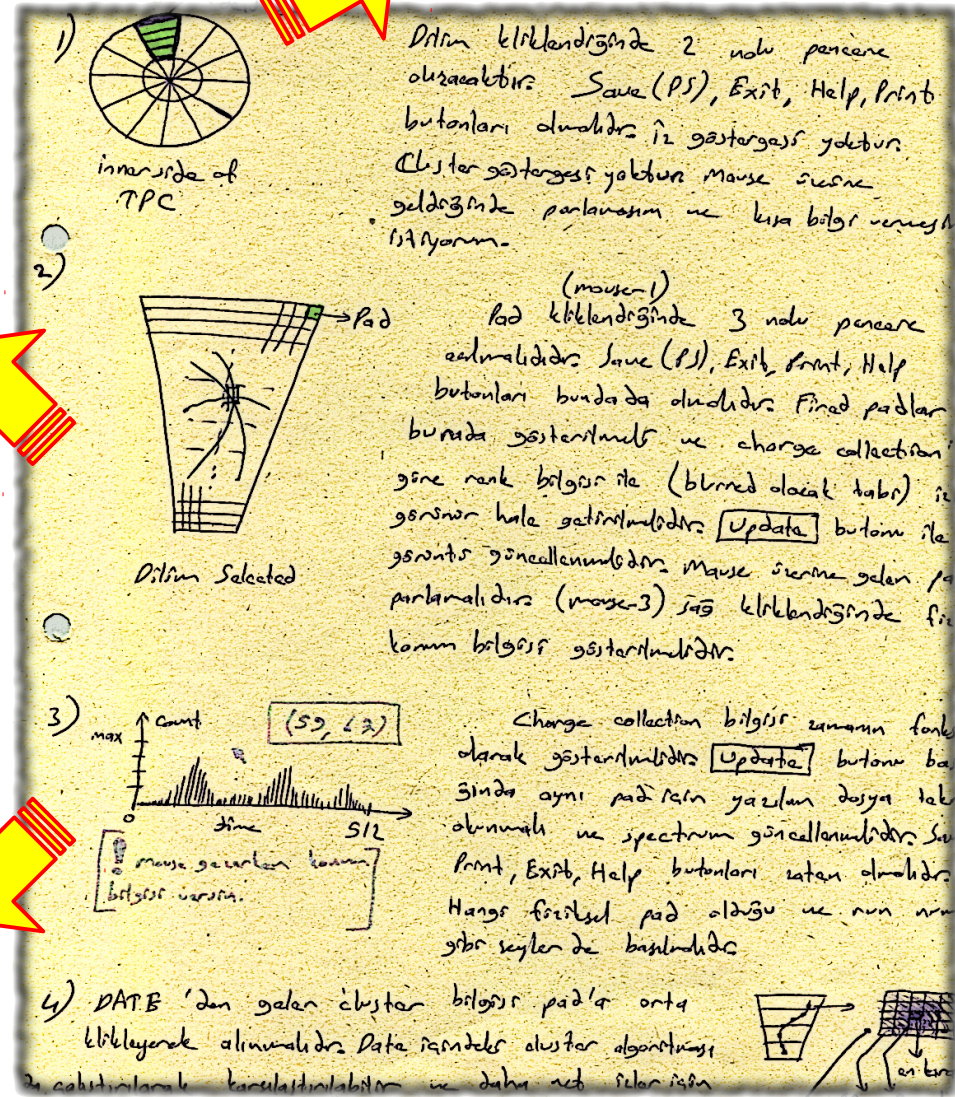 1)
Dilim kliklendiğinde 2 nolu pencere
Save (PS), Exit, Help, Print
butonları olmalıdır. İz göstergesi yoktur.
Cluster göstergesi yoktur. Mouse üzerine
geldiğinde parlamasını ve kısa bilgi
istiyorum.
inner side of
TPC
2)
(mouse-1)
Pad kliklendiğinde 3 nolu pencere
Save (PS), Exit, Print, Help
butonları bundada olmalıdır. Fired padlar
burada gösterilmeli ve charge collection
göre renk bilgisi ile (blurred olacak tabi) iz
görünür hale getirilmelidir. Update butonu ile
görüntü güncellenmelidir. Mouse üzerine gelen
parlamalıdır. (mouse-3) sağ kliklendiğinde
konum bilgisi gösterilmelidir.
Pad
Dilim Selected
3)
max
Count
0
time
512
! mouse gezerken konum
bilgisi versin.
Charge collection bilgisi zamanın
olarak gösterilmelidir. Update butonu
ğında aynı pad için yazılan dosya
okunmalı ve spectrum güncellenmelidir.
Print, Exit, Help butonları zaten olmalıdır.
Hangi fiziksel pad olduğu ve run
gibi şeyler de basılmalıdır.
4) DATE 'den gelen cluster bilgisi pad'a orta
klikleyerek alınmalıdır. Data içindeki cluster algoritması
çalıştırılarak karşılaştırılabilir ve daha net izler için